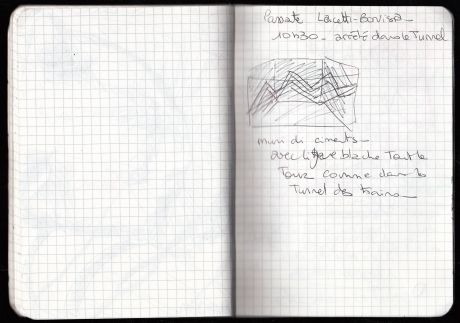 Lacetti-Bovisa-
10h30 - arrêté dans le Tunnel
mur de ciments -
avec ligne blache Tout le
Tour comme dans le
Tunnel des trains -